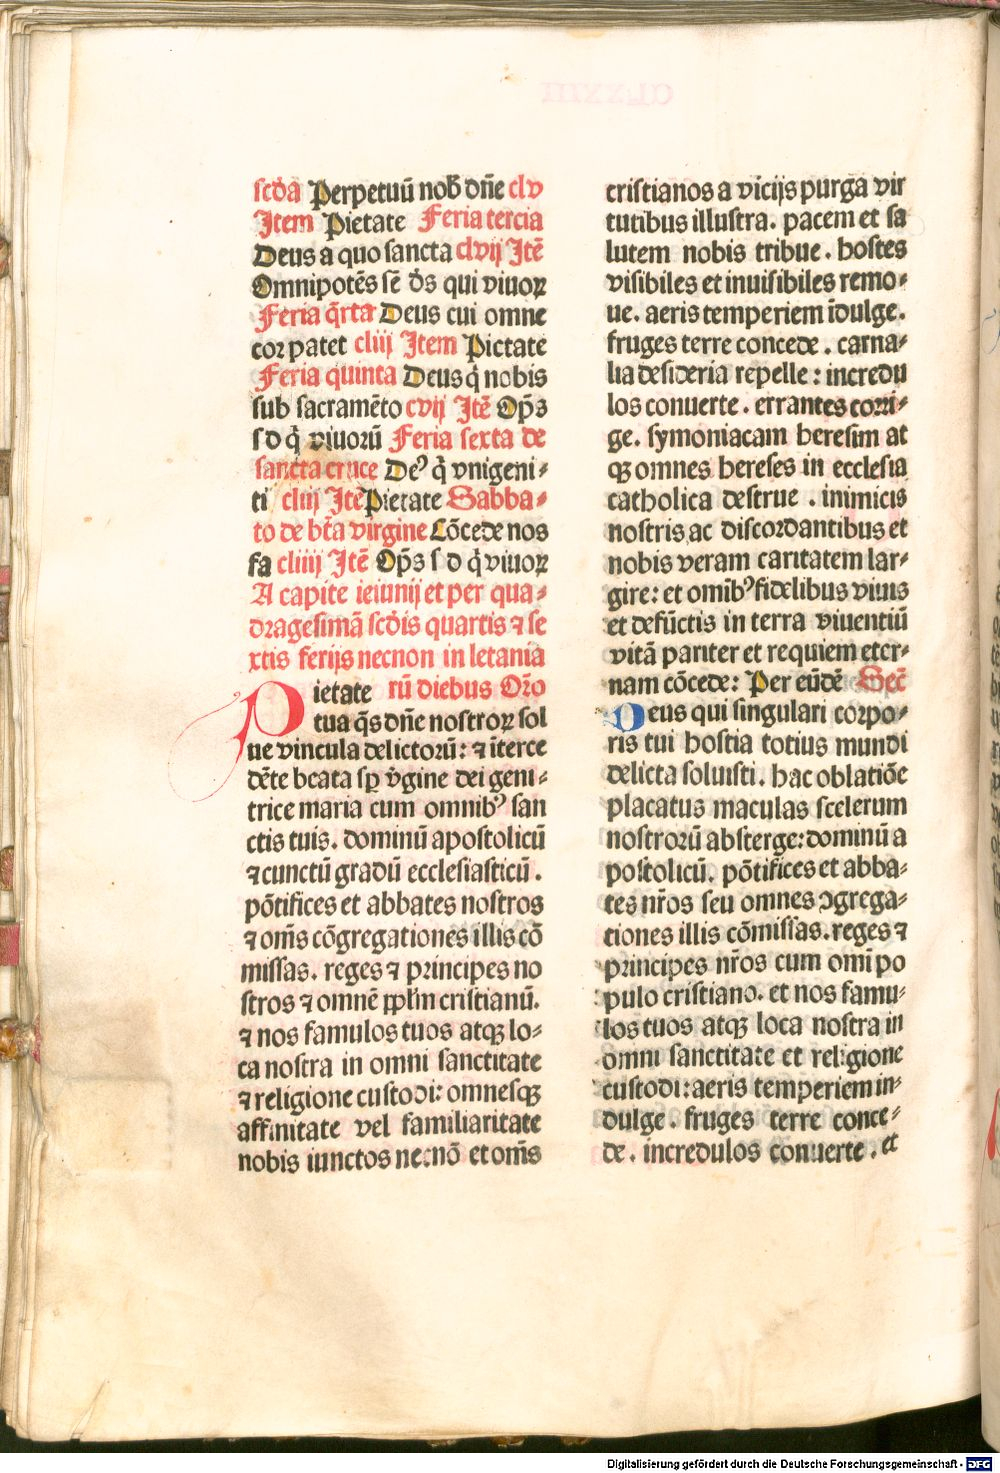 scďa Perpetuū nob̄ dn̄e clv
Item Pietate Feria tercia
Deus a quo sancta clvij Itē
Omnipotēs sē ds̄ qui viuoꝝ
Feria q̄rta Deus cui omne
cor patet cliij Item Pietate
Feria quinta Deus q̄ nobis
sub sacramēto cvij Itē Op̄s
s d q̄ viuorū Feria sexta de
sancta cruce Deꝰ q̄ vnigeni⸗
ti cliij Itē Pietate Sabba⸗
to de bt̄a virgine Cōcede nos
fa cliiij Itē Op̄s s d q̄ viuoꝝ
A capite ieiunij et per qua⸗
dragesimā scďis quartis ⁊ se
xtis ferijs necnon in letania
Pietate rū diebus Or̄o
tua q̄s dn̄e nostroꝝ sol
ue vincula delictorū: ⁊ īterce
dēte beata sꝑ v̄gine dei geni⸗
trice maria cum omnibꝰ san
ctis tuis. dominū apostolicū
⁊ cunctū gradū ecclesiasticū.
pōtifices et abbates nostros
⁊ om̄s cōgregationes illis cō
missas. reges ⁊ principes no
stros ⁊ omnē ppl̄m cristianū.
⁊ nos famulos tuos atqꝫ lo⸗
ca nostra in omni sanctitate
⁊ religione custodi: omnesqꝫ
affinitate vel familiaritate
nobis iunctos necnō et om̄s
cristianos a vicijs purga vir
tutibus illustra. pacem et sa
lutem nobis tribue. hostes
visibiles et inuisibiles remo⸗
ue. aeris temperiem īdulge.
fruges terre concede. carna⸗
lia desideria repelle: incredu
los conuerte. errantes corri⸗
ge. symoniacam heresim at
qꝫ omnes hereses in ecclesia
catholica destrue. inimicis
nostris ac discordantibus et
nobis veram caritatem lar⸗
gire: et omībꝰ fidelibus viuis
et defūctis in terra viuentiū
vitā pariter et requiem eter⸗
nam cōcede: Per eūdē Sec̄
Deus qui singulari corpo⸗
ris tui hostia totius mundi
delicta soluisti. hac oblatiōe
placatus maculas scelerum
nostrorū absterge: dominū a
postolicū. pōtifices et abba⸗
tes nr̄os seu omnes ꝯgrega⸗
tiones illis cōmissas. reges ⁊
principes nr̄os cum omī po
pulo cristiano. et nos famu⸗
los tuos atqꝫ loca nostra in
omni sanctitate et religione
custodi: aeris temperiem in⸗
dulge. fruges terre conce⸗
de. incredulos conuerte. et
Digitalisierung gefördert durch die Deutsche Forschungsgemeinschaft - DFG